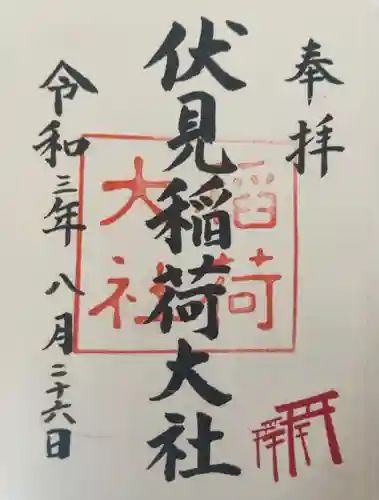 奉拝
伏見稲荷大社
稲荷
大社
令和三年 八月二十六日